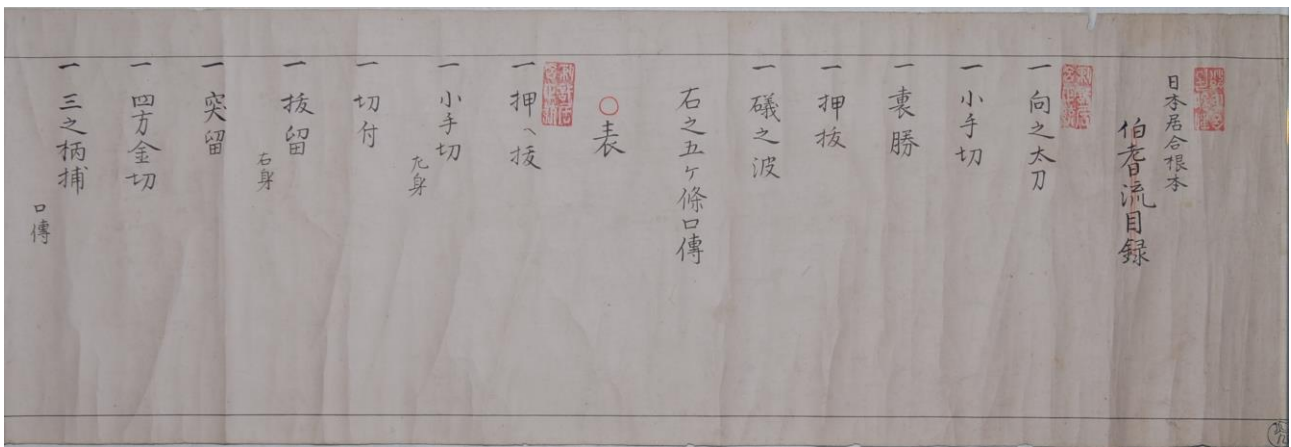 日本居合根本
伯耆流目録
一 向之太刀
一 小手切
一 裏勝
一 押抜
一 礒之波
右之五ヶ條口傳
○表
一 押ヘ抜
一 小手切
左身
一 切付
一 抜留
右身
一 突留
一 四方金切
一 三之柄捕
口傳